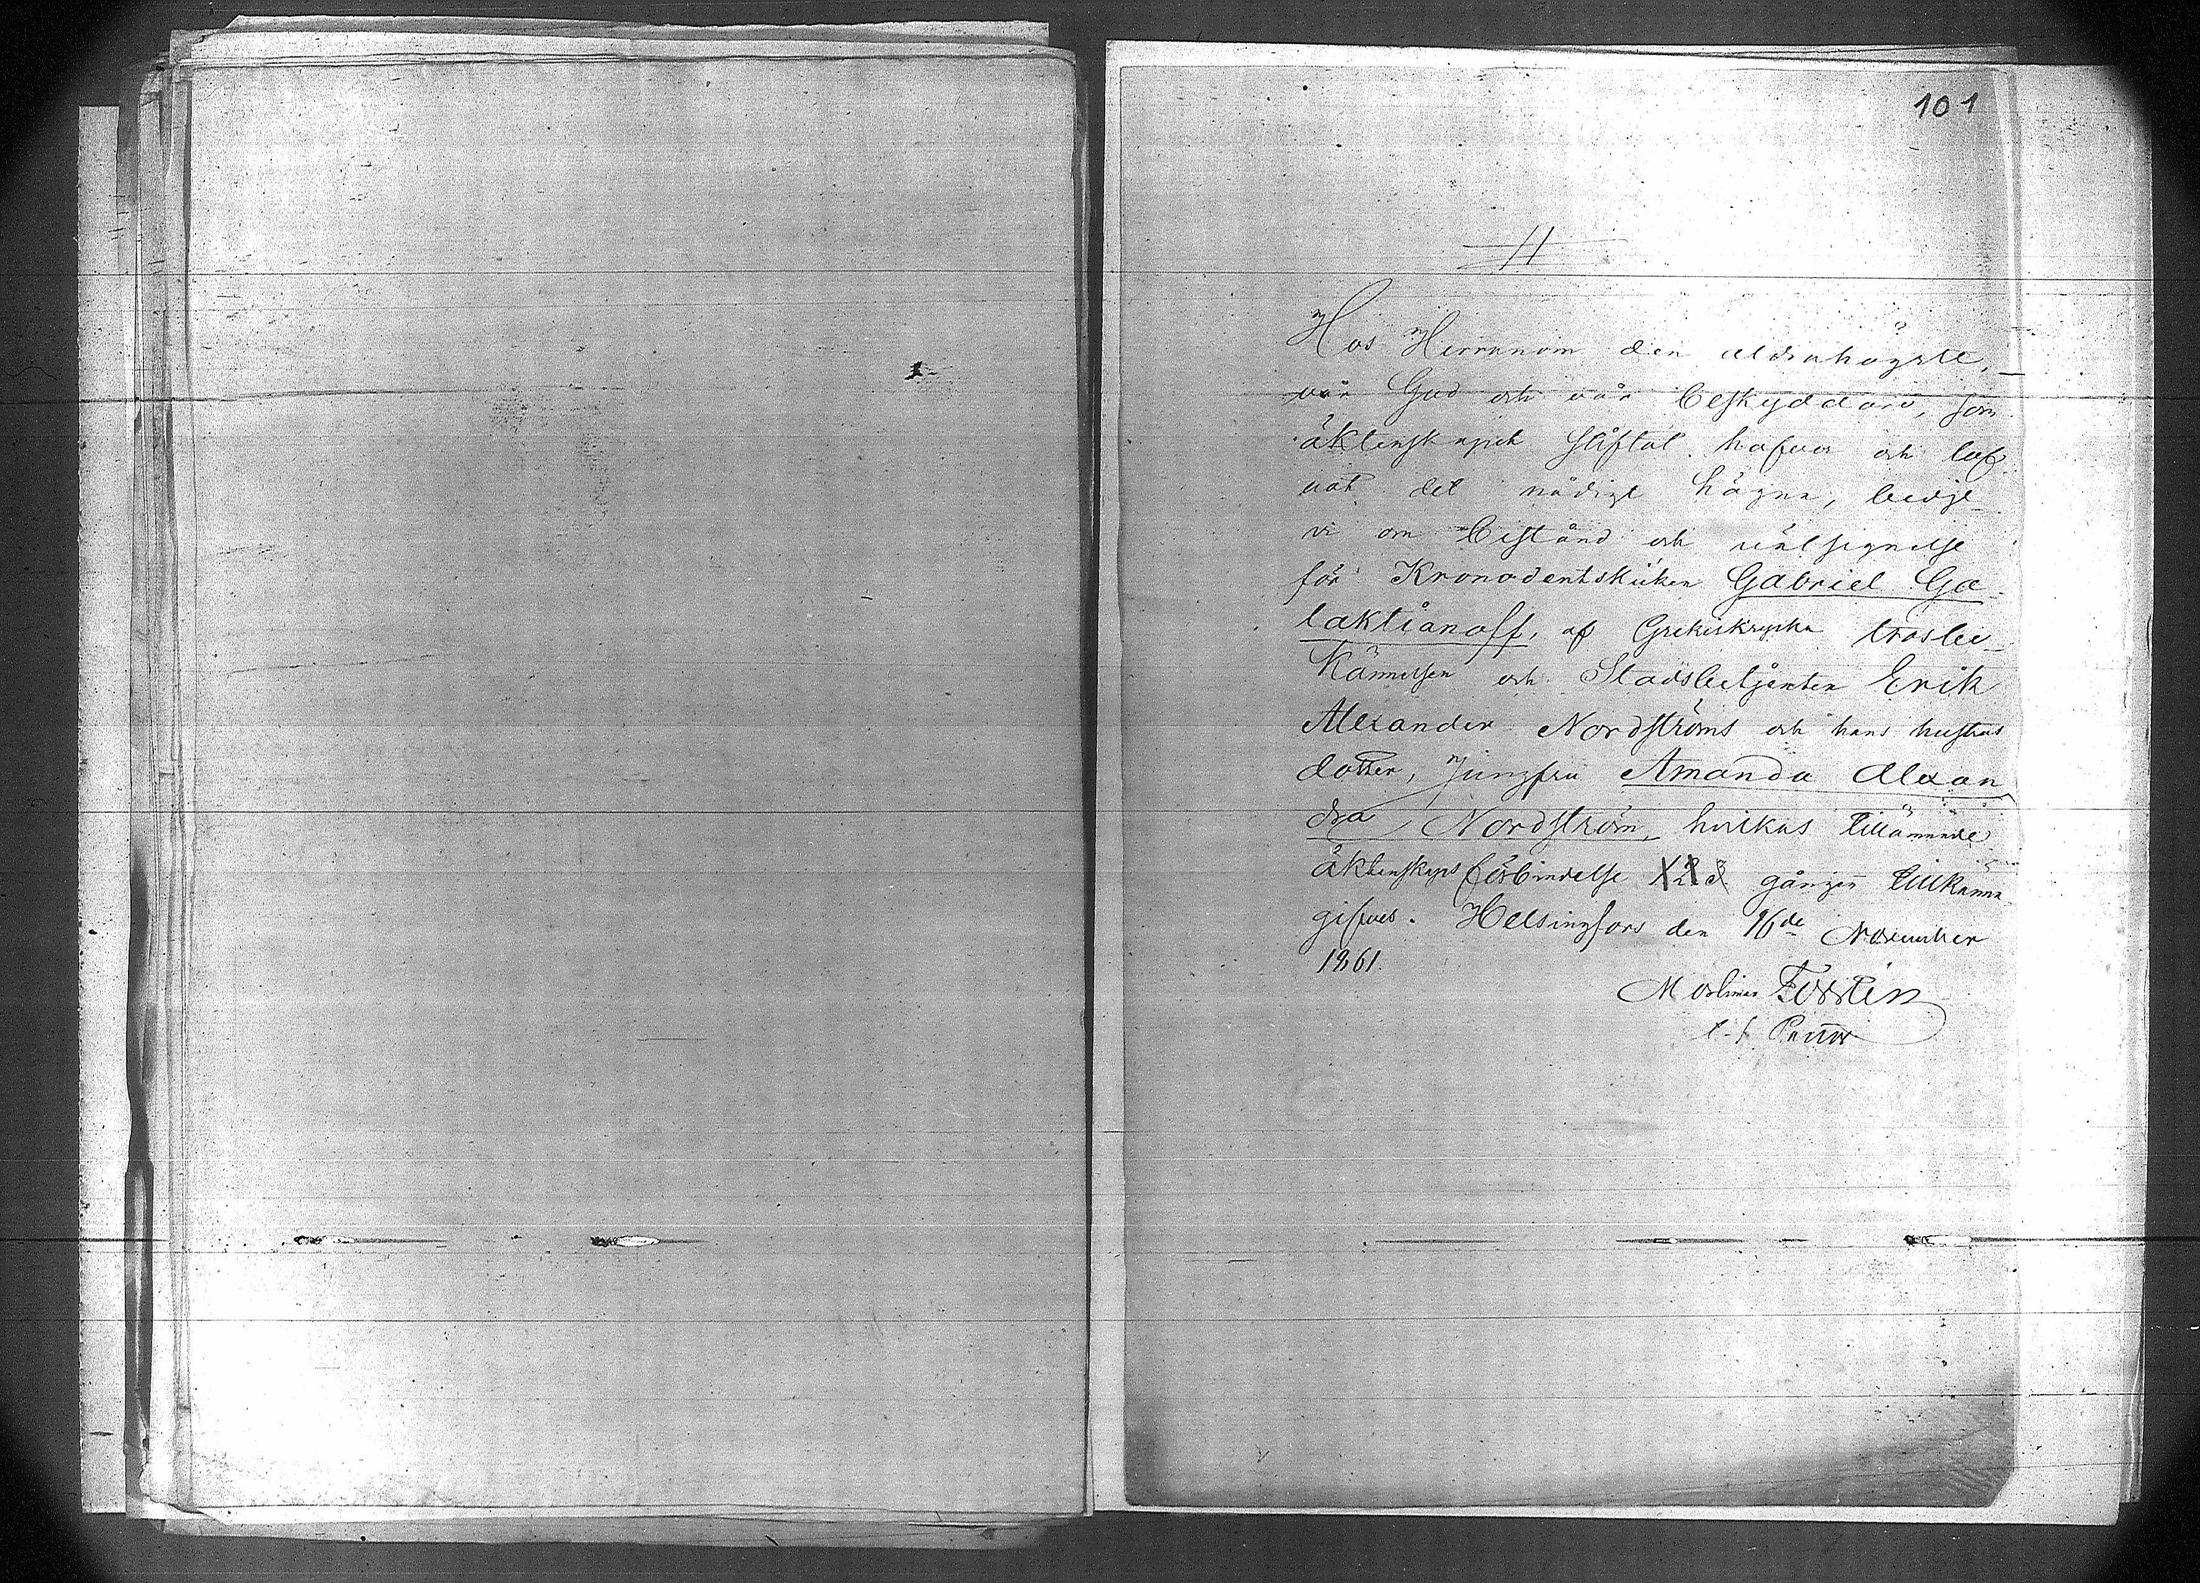 101
H
Hos Herranom den aldrahögste,
vår Gud och vår beskyddare, som
äktenskapet stiftat hafver och lof-
vat det nådigt hägna, bedje
vi om bistånd och välsignelse
för Gabriel Ga-
laktiånoff, af Grekiskryska trosbe-
kännelsen och Stadsbetjenten Erik
Alexander Nordströms och hans hustrus
dotter, Jungfru Amanda Alexan-
dra Nordström, hvilkas tillämnade
äktenskaps förbindelse gången tillkänna
gifves. Helsingfors den 16de November
1861.
Forstén
t. f. Pastor